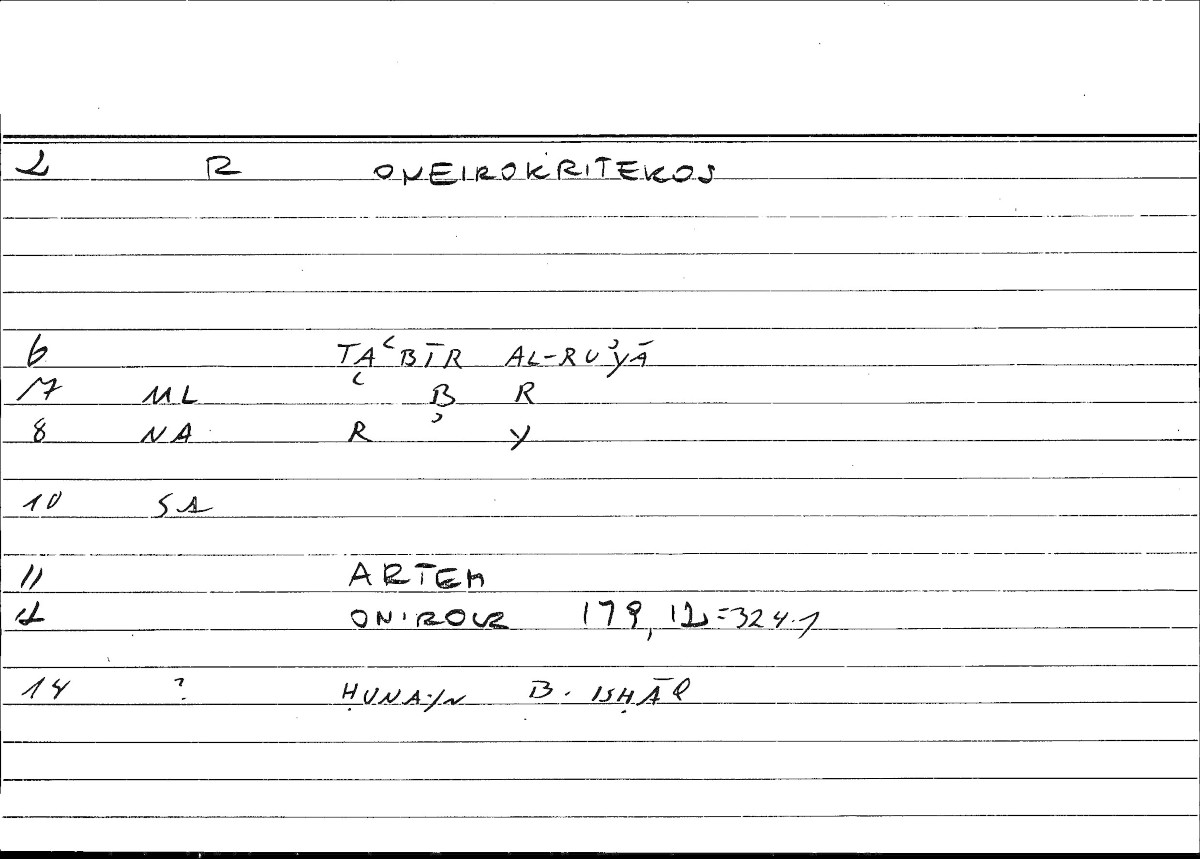 2 R ONEIROKRITEKOS
6 TAʿBĪR AL-RUʾYĀ
7 ML ʿ B R
8 NA R ʾ Y
10 SA
11 ARTEM
12 ONIROCR 179, 12=324.7
14 ? ḤUNAYN B. ISḤĀQ